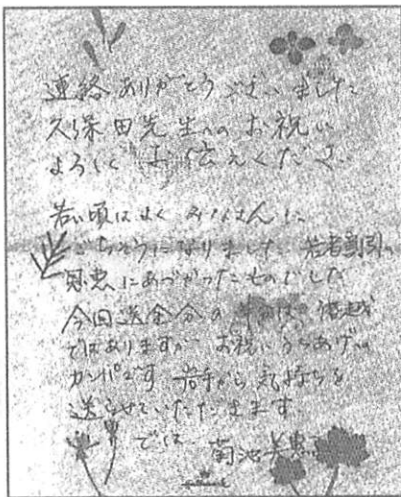 連絡ありがとうございました
久保田先生へのお祝い
よろしくお伝えください
若い頃はよくみなさんに
ごちそうになりました 若者割引の
恩恵にあづかったものでした
今回送金分の 半分は 僭越
ではありますが お祝いうちあげの
カンパです 若手から気持ちを
送らせていただきます
では 菊池美恵
Hallmark